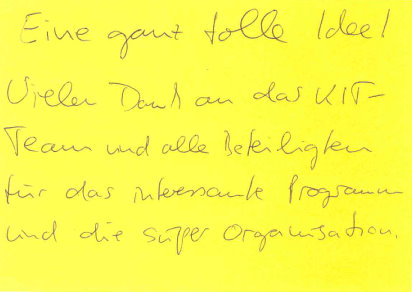 Eine ganz tolle Idee!
Vielen Dank an das KIT-
Team und alle Beteiligten
für das interessante Programm
und die super Organisation.